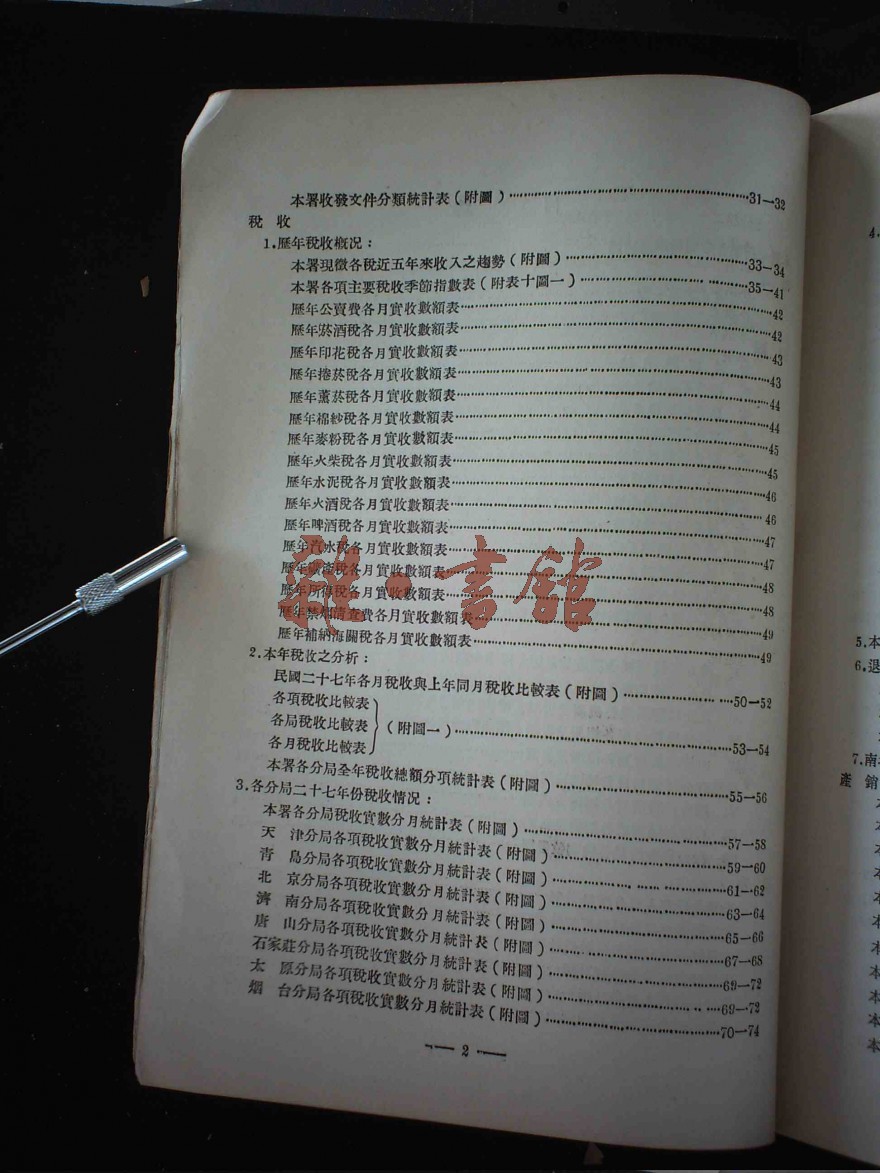 本署收發文件分類統計表(附圖)……31—32
稅 收
1.歷年稅收概况：
本署現徵各稅近五年來收入之趨勢(附圖)……33—34
本署各項主要稅收季節指數表(附表十圖一)……35—41
歷年公賣費各月實收數額表……42
歷年菸酒稅各月實收數額表……42
歷年印花稅各月實收數額表……43
歷年捲菸稅各月實收數額表……43
歷年薰菸稅各月實收數額表……44
歷年棉紗稅各月實收數額表……44
歷年麥粉稅各月實收數額表……45
歷年火柴稅各月實收數額表……45
歷年水泥稅各月實收數額表……46
歷年火酒稅各月實收數額表……46
歷年啤酒稅各月實收數額表……47
歷年汽水稅各月實收數額表……47
歷年礦產稅各月實收數額表……48
歷年所得稅各月實收數額表……48
歷年禁烟清查費各月實收數額表……49
歷年補納海關稅各月實收數額表……49
2.本年稅收之分析：
民國二十七年各月稅收與上年同月稅收比較表(附圖)……50—52
各項稅收比較表
各局稅收比較表 (附圖一)……53—54
各月稅收比較表
本署各分局全年稅收總額分項統計表(附圖)……55—56
3.各分局二十七年份稅收情况：
本署各分局稅收實數分月統計表(附圖)……57—58
天 津分局各項稅收實數分月統計表(附圖)……59—60
青 島分局各項稅收實數分月統計表(附圖)……61—62
北 京分局各項稅收實數分月統計表(附圖)……63—64
濟 南分局各項稅收實數分月統計表(附圖)……65—66
唐 山分局各項稅收實數分月統計表(附圖)……67—68
石家莊分局各項稅收實數分月統計表(附圖)……69—72
太 原分局各項稅收實數分月統計表(附圖)……69—72
烟 台分局各項稅收實數分月統計表(附圖)……70—74
— 2 —
書館
4.
5.本
6.退
7.南
產 銷
本
本
本
本
本
本
本
本
本